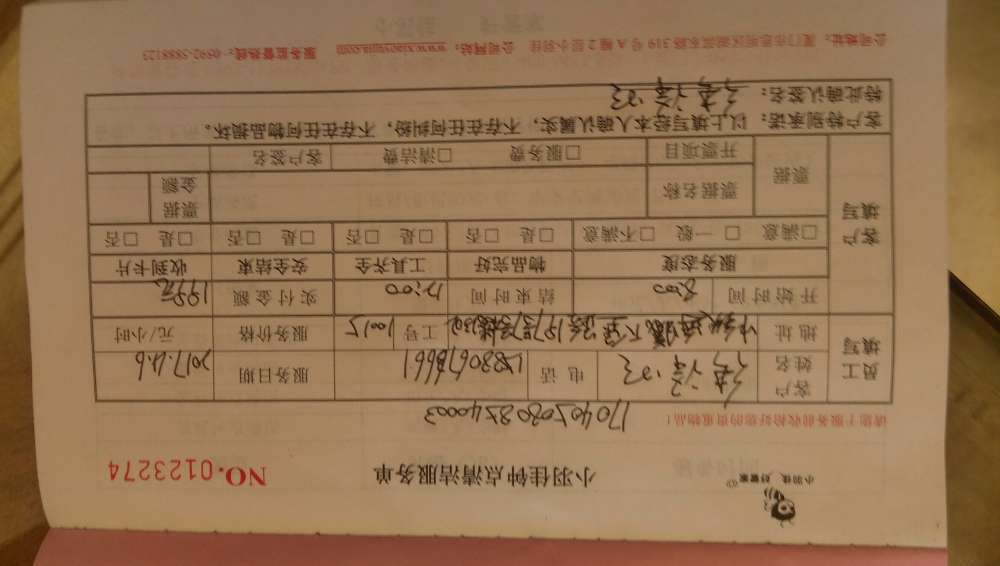 小羽佳 好管家
小羽佳钟点清洁服务单
NO.0123274
请您于服务前收捡好您的贵重物品！
1704050802540003
员工填写
客户姓名
电话
服务日期 2017.4.6
地址
工号 10015
服务价格
元/小时
开始时间 8:00 结束时间 12:00 实付金额 199元
客户填写
服务态度 物品完好 工具齐全 安全结束 收到卡片
□满意 □一般 □不满意 □是 □否 □是 □否 □是 □否 □是 □否
票据 票据名称 票据金额
开票项目 □服务费 □清洁费 客户签名
客户特别承诺：以上填写经本人确认属实，不存在任何纠纷，不存在任何物品损坏。
特此确认签名：
公司地址：厦门市思明区湖滨东路319号A幢2层小羽佳 公司网站：www.xiaoyujia.com 服务监督热线：0592-5888123